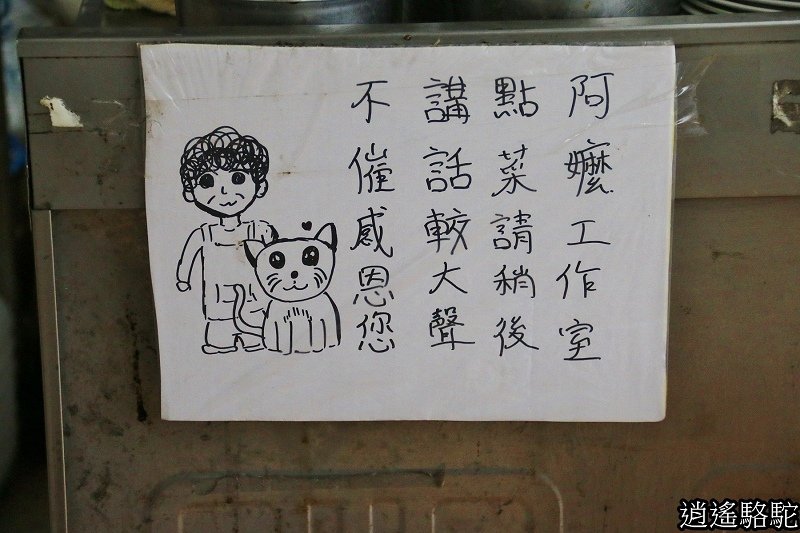 阿嬤工作室
點菜請稍後
講話較大聲
不催感恩您
逍遙駱駝